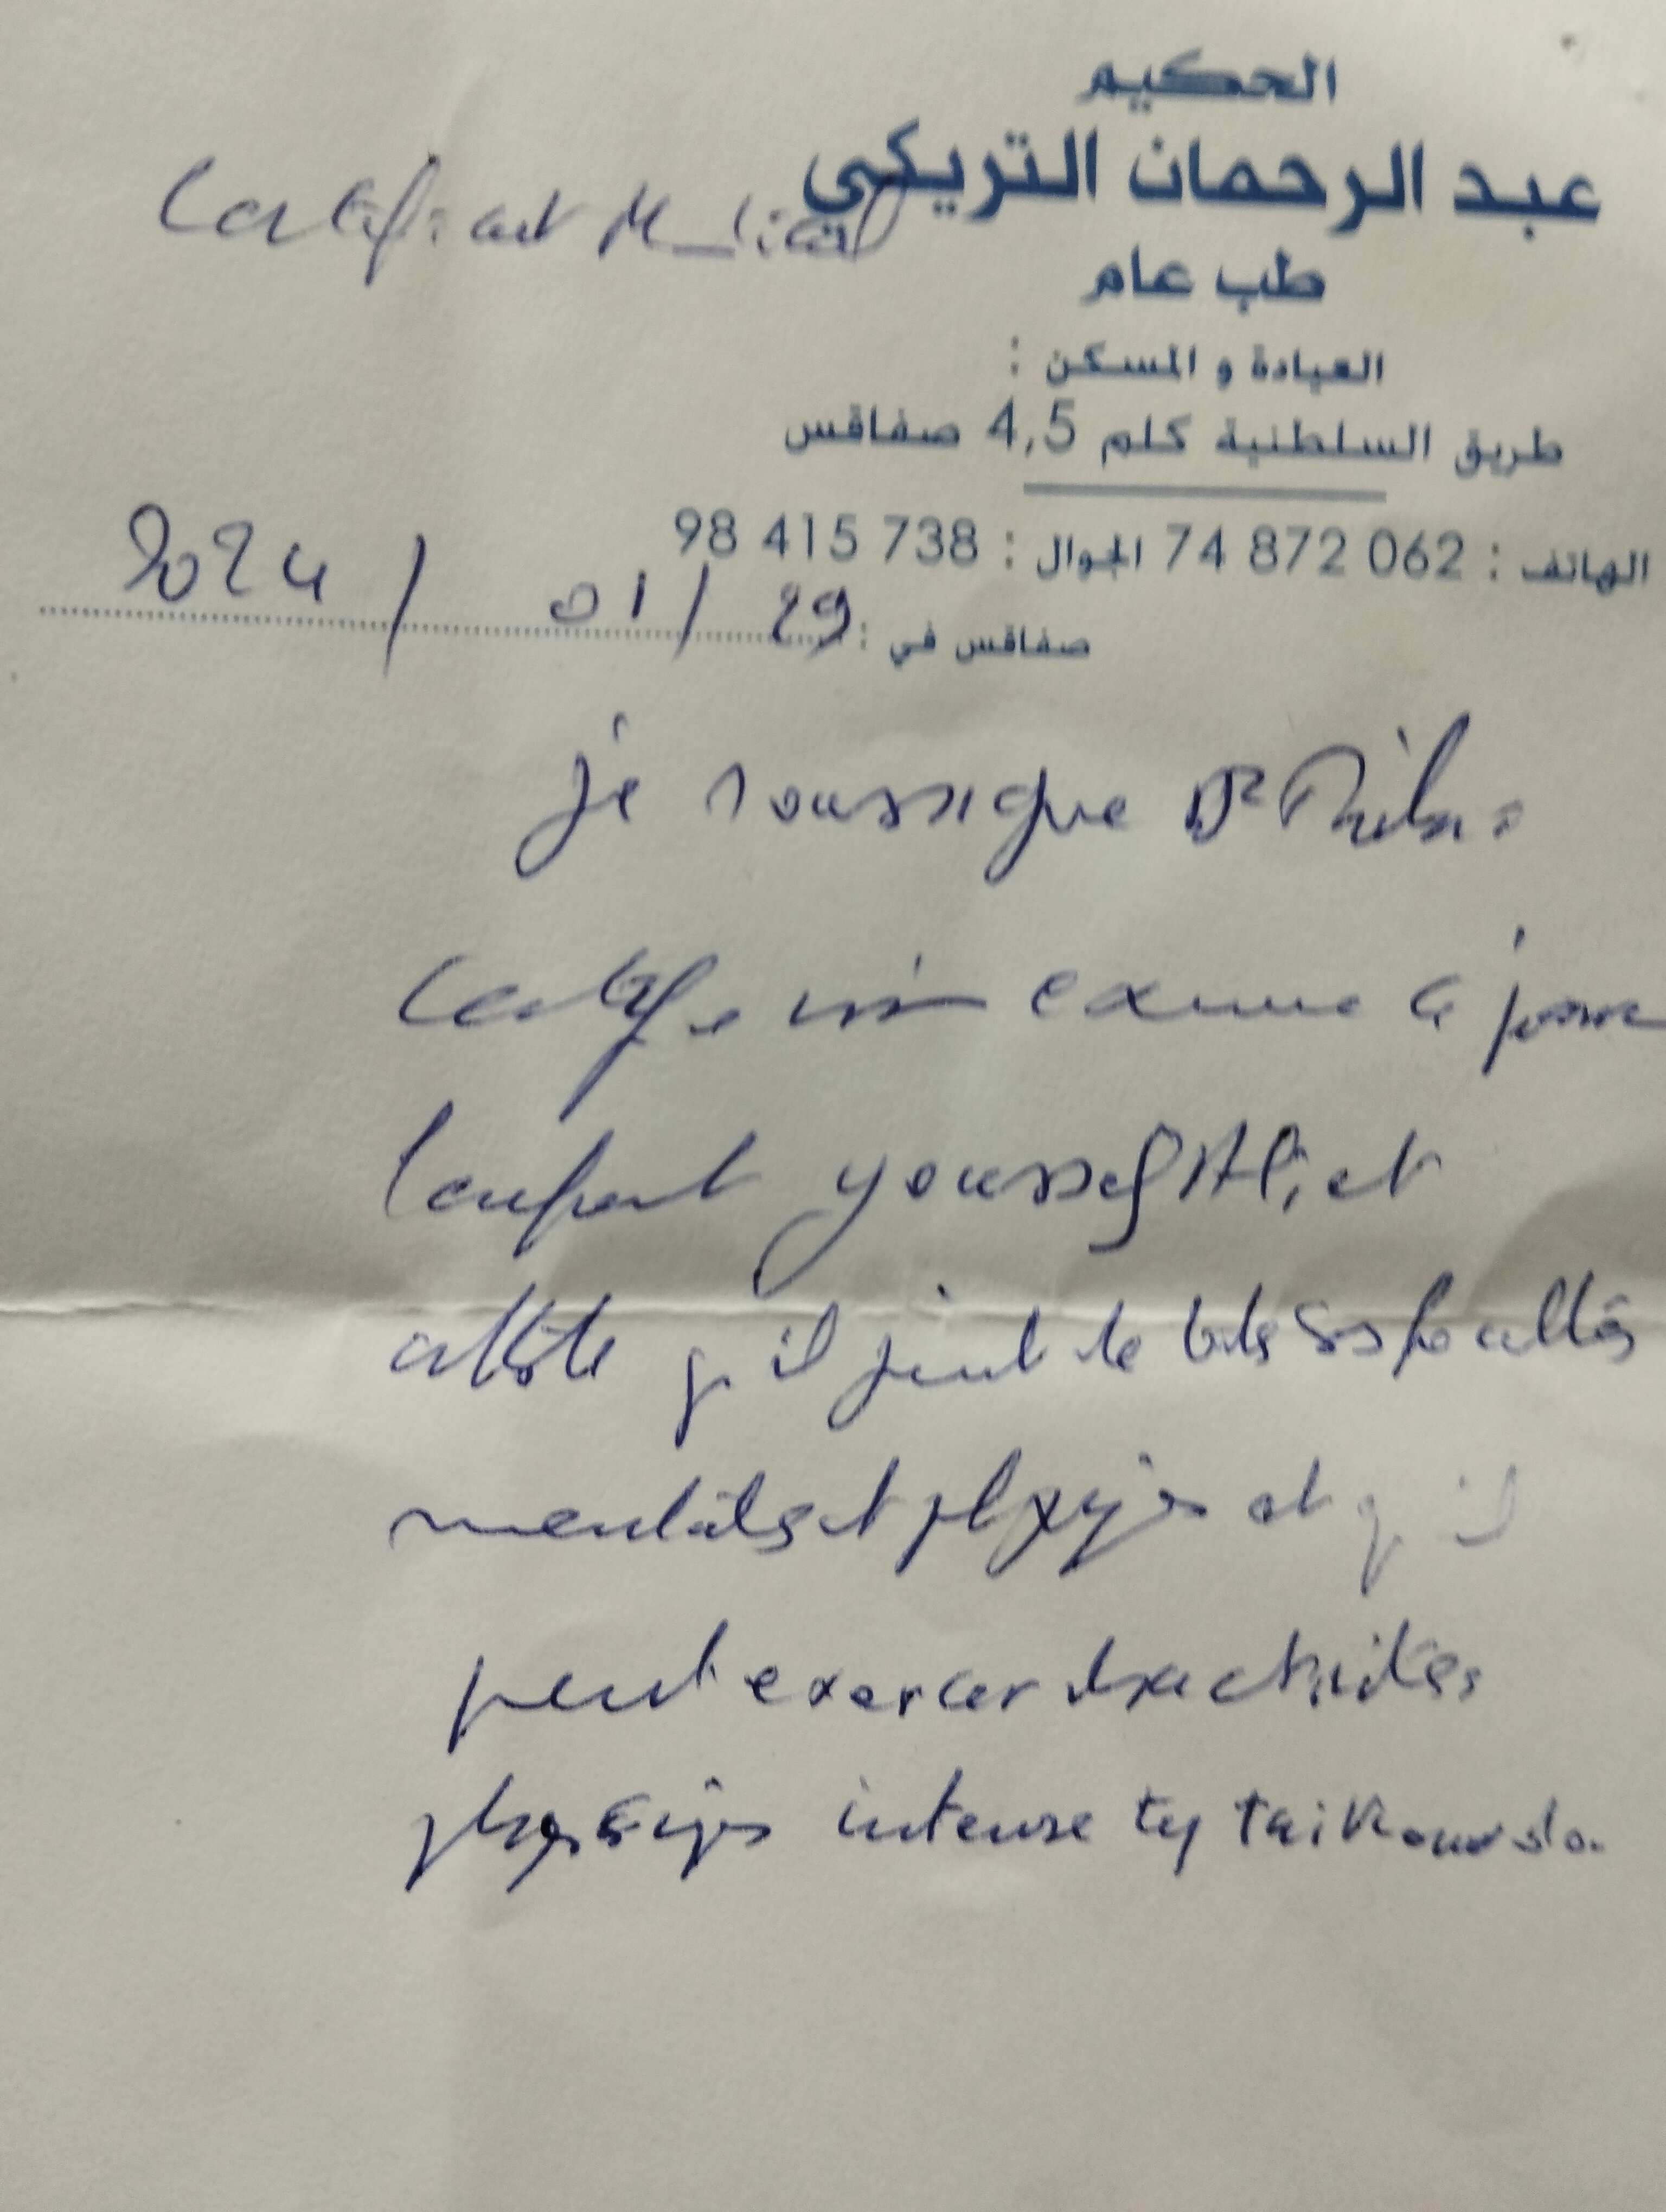 الحكيم
عبد الرحمان التريكي
Certificat Médical
طب عام
العيادة و المسكن :
طريق السلطنية كلم 4,5 صفاقس
الهاتف : 74 872 062 الجوال : 98 415 738
صفاقس في : 29 / 01 / 2024
je soussigne Dr
Certifie avoir examine ce jour
l'enfant youssef Ali et
atteste qu'il jouit de toutes ses facultés
mentales et physiques et qu'il
peut exercer des activités
physiques intense ty taikouando.